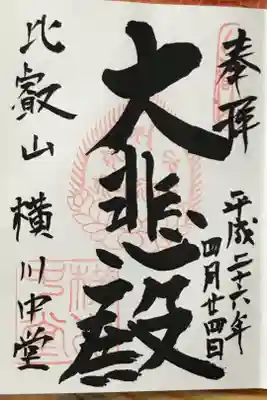 奉拝
平成二十六年
四月廿四日
大悲殿
比叡山 横川中堂